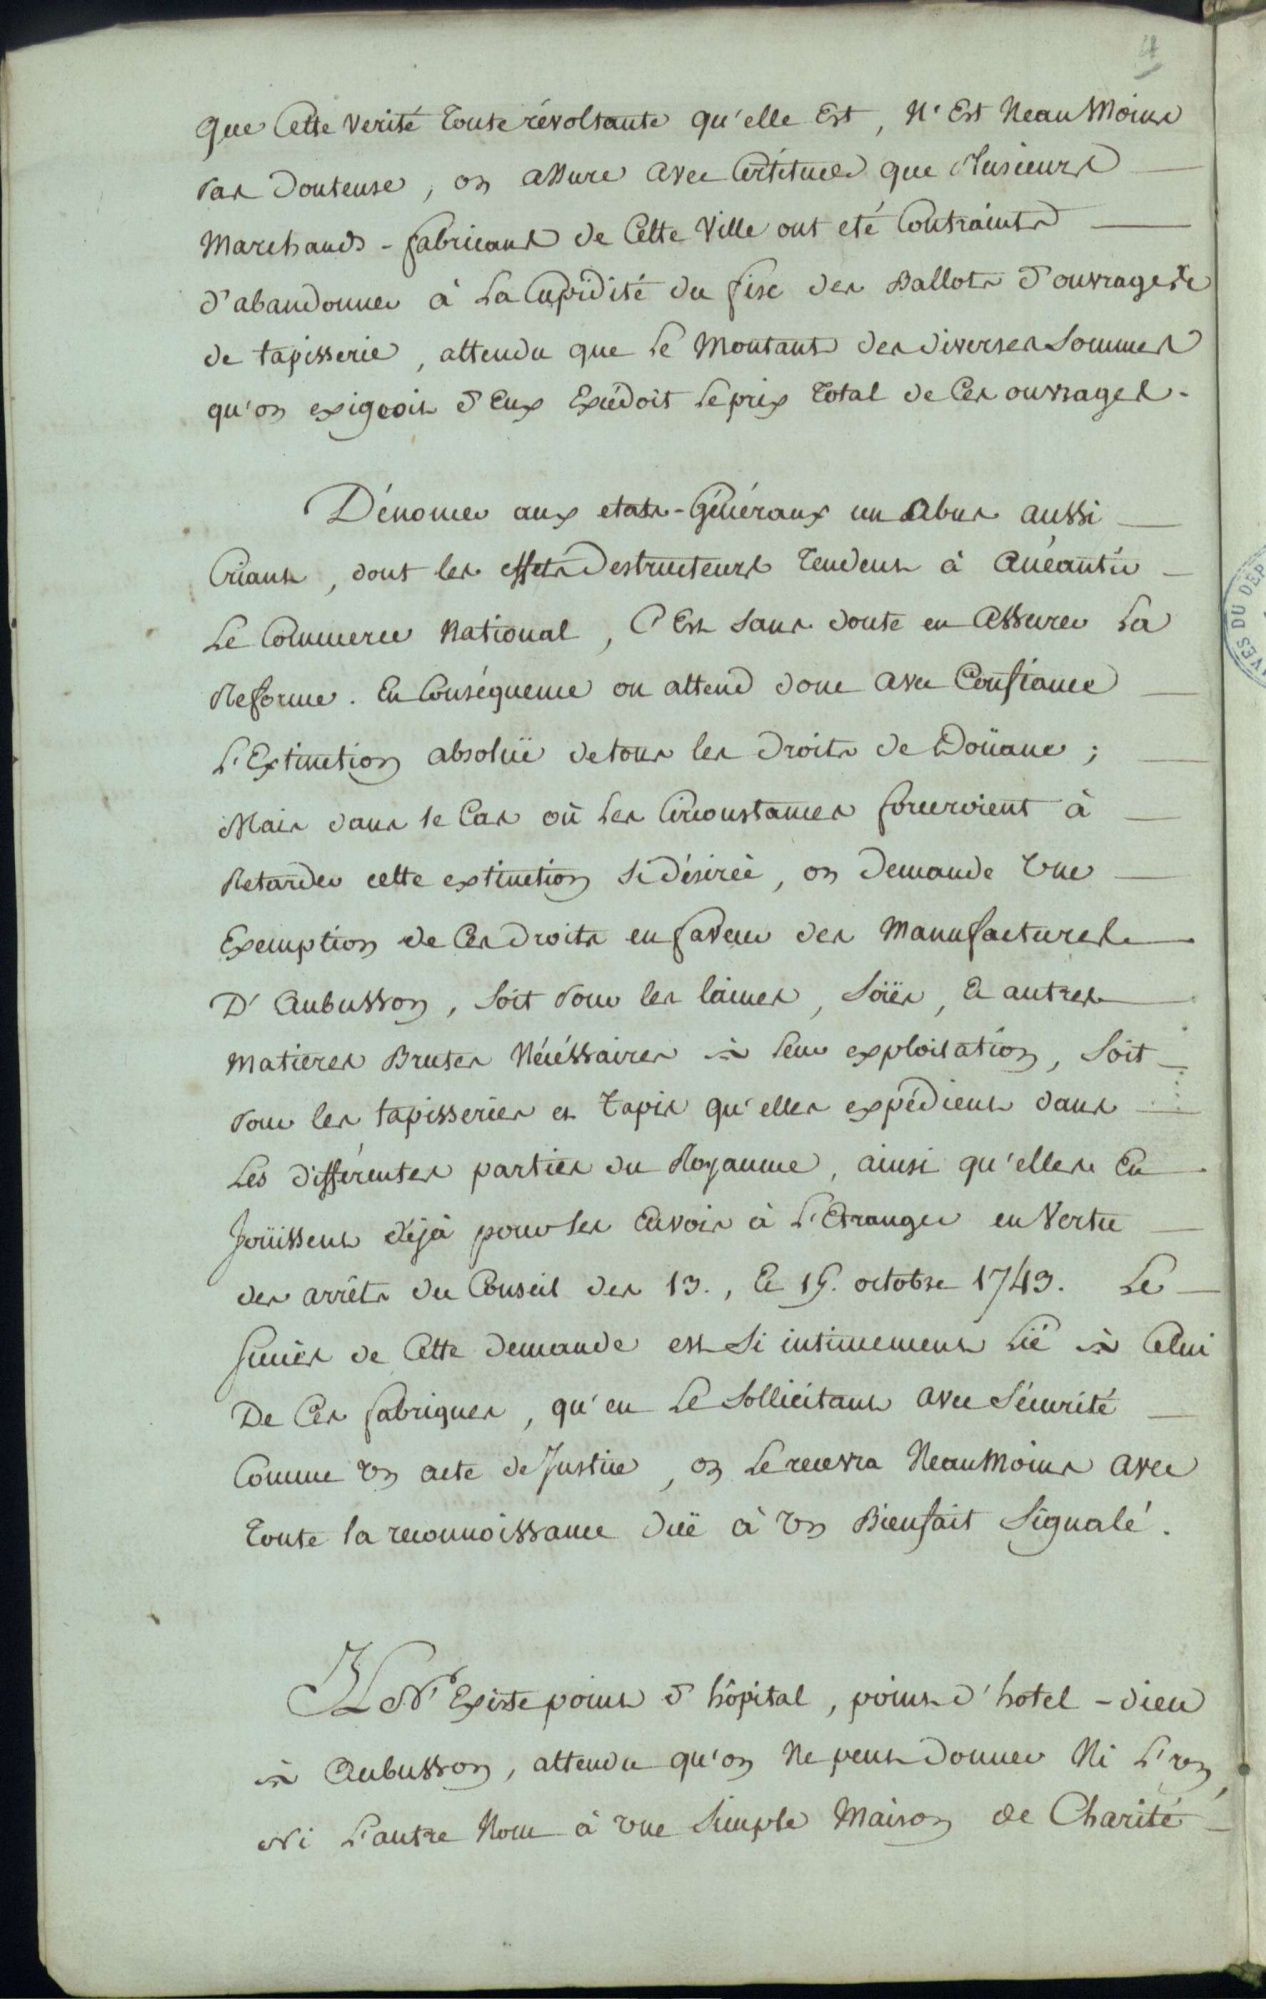 4
que Cette verité toute révoltante qu'elle Est, N'Est Neau Moins
pas douteuse, on assure avec Certitude que Plusieurs
Marchands-fabricans de Cette Ville ont eté Contraints
d'abandonner à La Cupidité du fisc des Ballots d'ouvrages
de tapisserie, attendu que Le Montant des diverses Sommes
qu'on exigeoit d'Eux Excédoit Le prix total de Ces ouvrages.
Dénoncer aux etats-Généraux un Abus aussi
Criant, dont les effets Destructeurs tendent à Anéantir
Le Commerce National, C'Est Sans doute en Assurer La
Reforme. En Conséquence on attend donc avec Confiance
L'Extinction absoluë de tous les droits de Doüane ;
Mais dans le Cas où Les Circonstances forceroient à
Retarder cette extinction si désirée, on demande Une
Exemption de Ces droits en faveur des Manufactures
D'Aubusson, Soit pour les laines, Soïes, & autres
Matieres Brutes Nécéssaires à leur exploitation, Soit
pour les tapisseries et tapis qu'elles expédient dans
Les différentes parties du Royaume, ainsi qu'elles En
Joüissent déjà pour les Envois à L'Etranger en Vertu
des arrêts du Conseil des 13., & 15. octobre 1743. Le
Succès de Cette demande est Si intimement Lié à Celui
De Ces fabriques, qu'en Le Sollicitant avec Sécurité
Comme Un acte de Justice, on Le recevra NeauMoins avec
toute la reconnoissance düe à Un Bienfait Signalé.
Il N'Existe point d'hôpital, point d'hotel-dieu
à Aubusson, attendu qu'on Ne peut donner Ni L'Un,
Ni L'autre Nom à Une Simple Maison de Charité
VES DU DEP